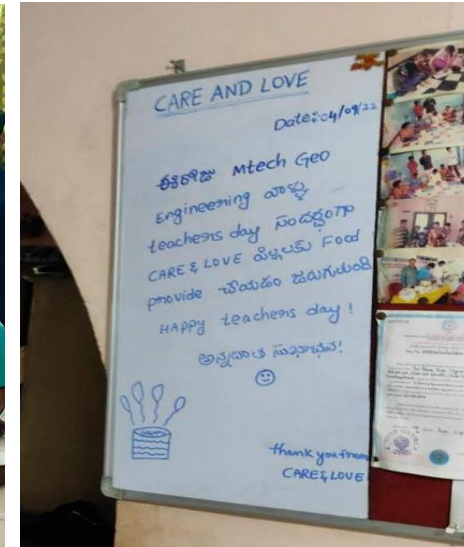 CARE AND LOVE
Date: 04/09/22
ఈరోజు Mtech Geo
Engineering వాళ్ళు
teachers day సందర్భంగా
CARE & LOVE పిల్లలకు Food
provide చేయడం జరుగుతుంది
HAPPY teachers day !
అన్నదాత సుఖీభవ!
thank you from
CARE & LOVE